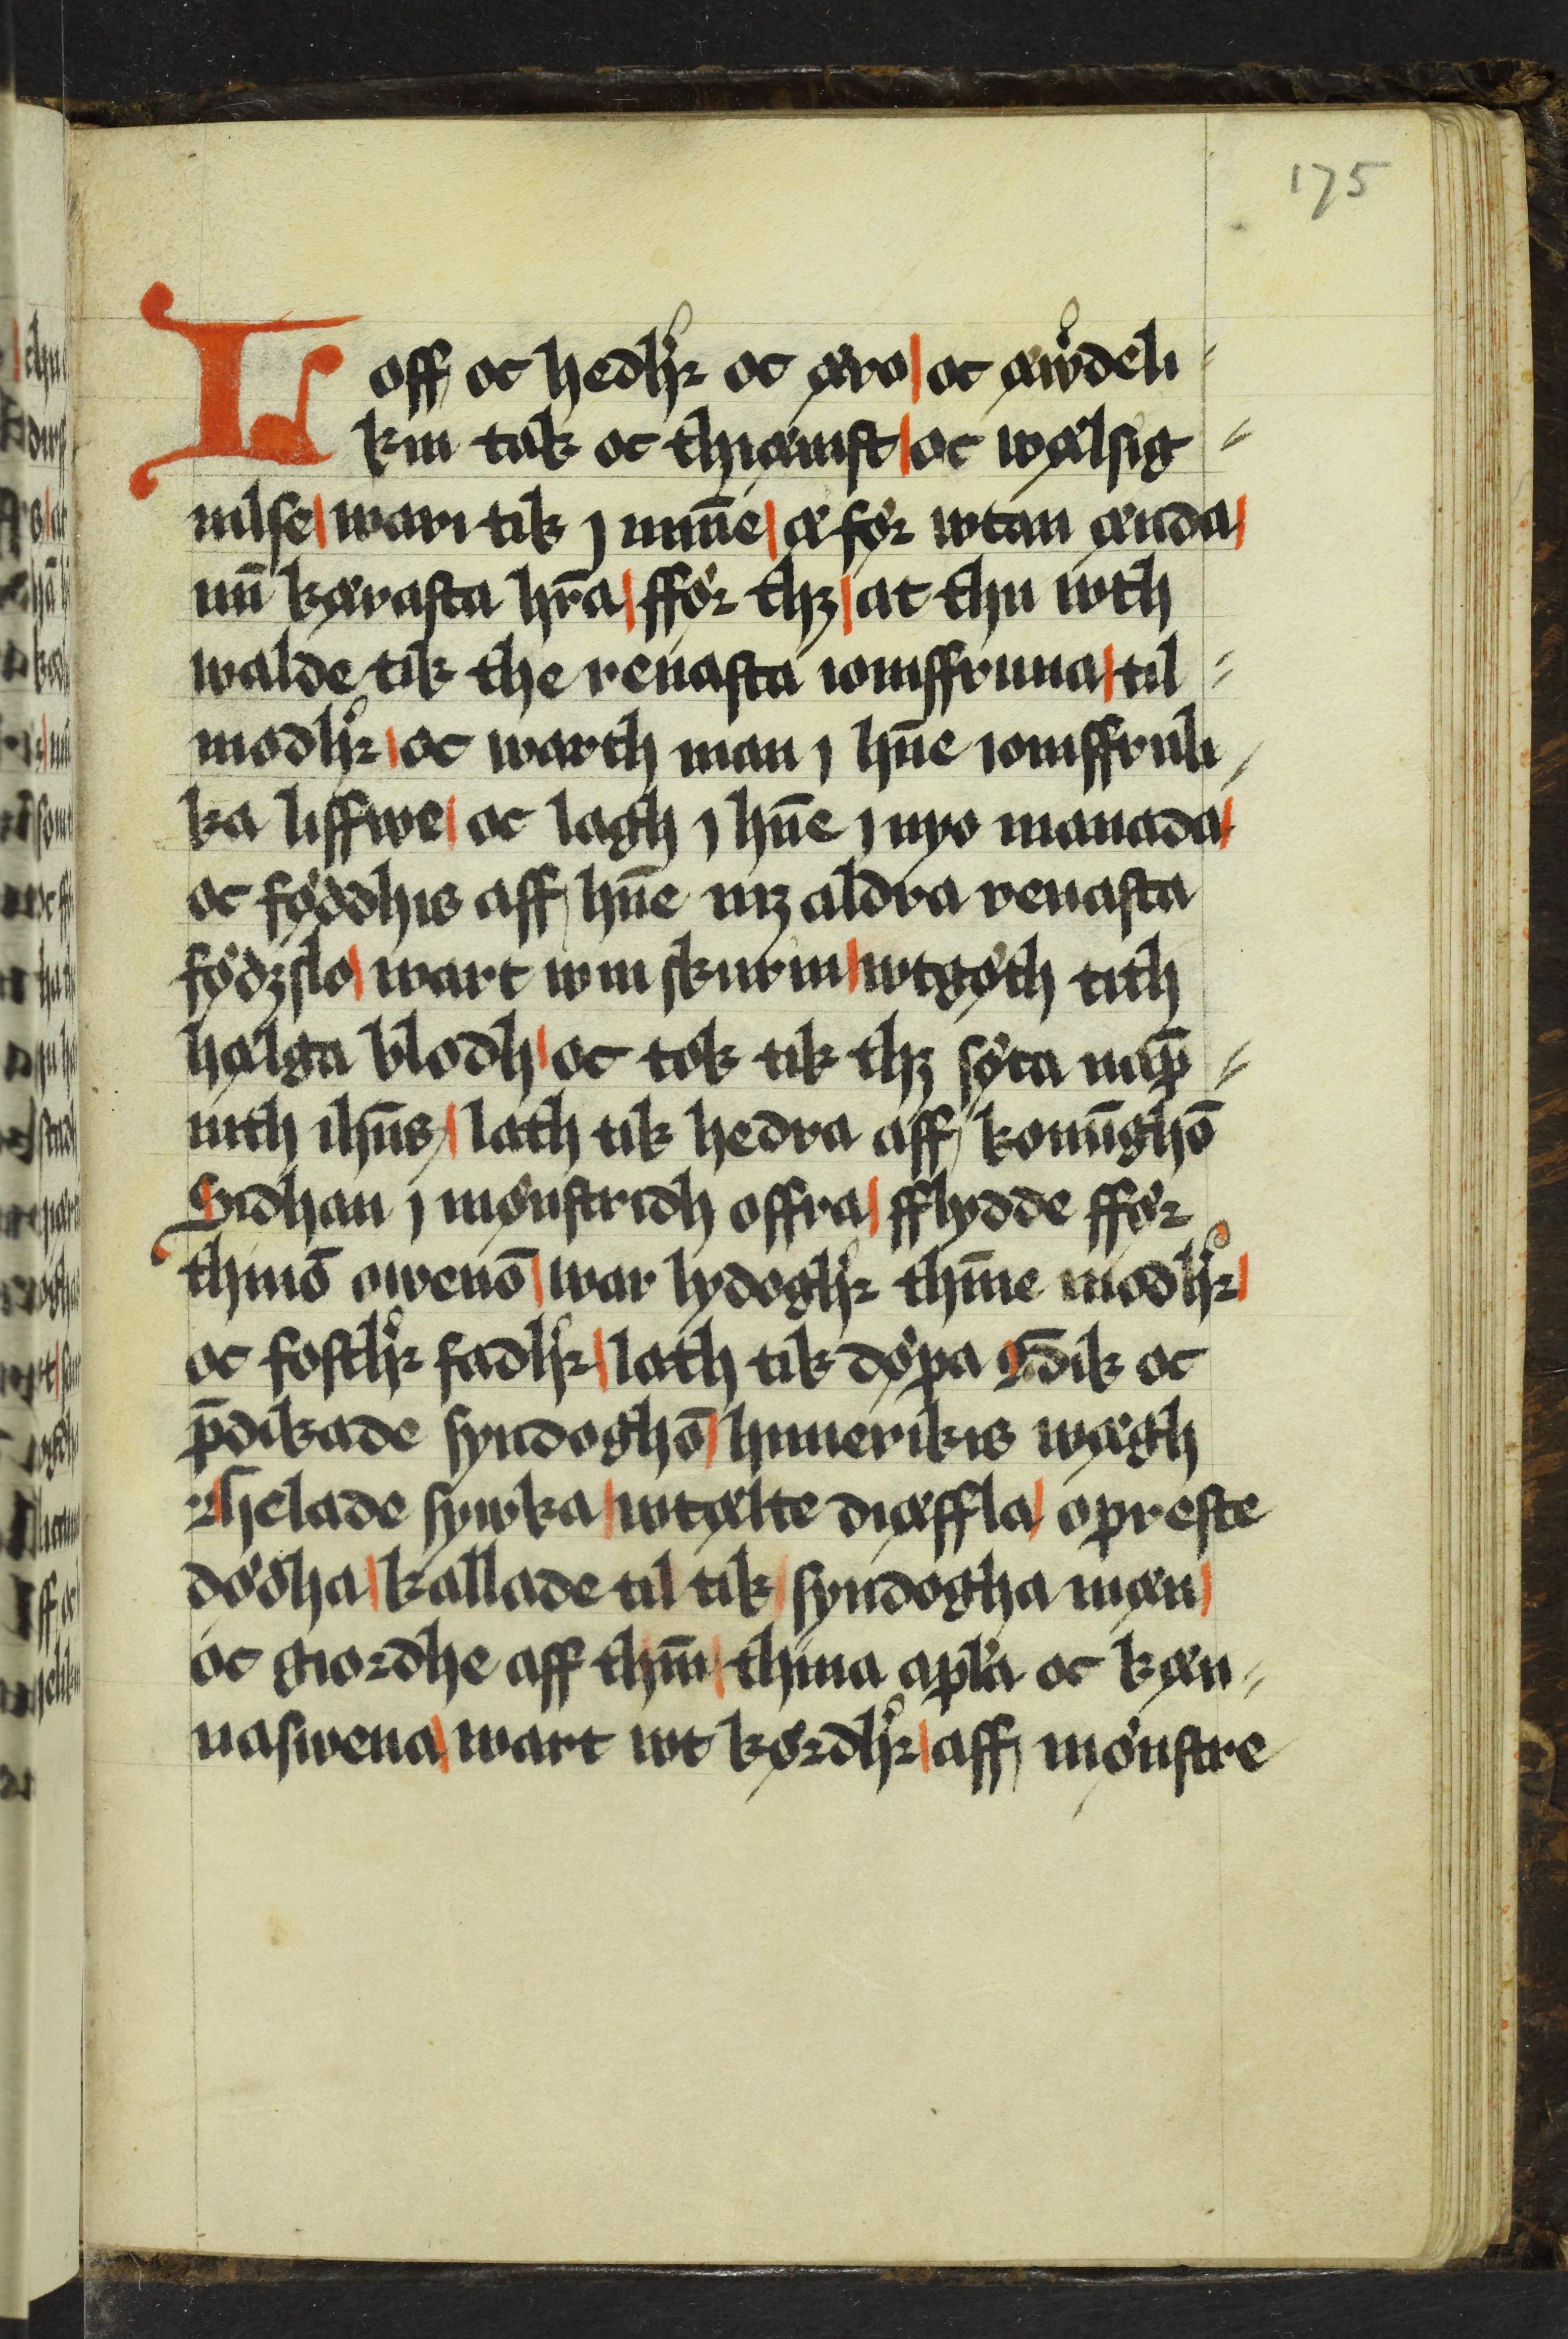 175
Loff oc hedhr oc æro oc æwerdeli
kin tak oc thiænist oc wælsig
nilse wari tik j minne æ for wtan ænda
min kærasta hr̄a fför thz at thu wth
walde tik the renasta iomffruna til
modhr oc warth man j hn̄e iomffruli
ka liffwe oc lagh j hn̄e j nyo manada
oc föddhis aff hn̄e mz aldra renasta
födzslo wart wm skurin wtgöth tith
hælga blodh oc tok tik thz söta nap̄
nith ihūs lath tik hedra aff konūghō
Sidhan j mönstridh offra fflydde fför
thinō owenō war lydoghr thīne modhr
oc fosthr fadhr lath tik döpa oc
p̄dikade syndoghō himerikis wægh
helade sywka wtælte diæffla opreste
dödha kallade til tik syndogha mæn
oc giordhe aff thm̄ thina apl̄a oc kæn
naswena wart wt kördhr aff mönstre